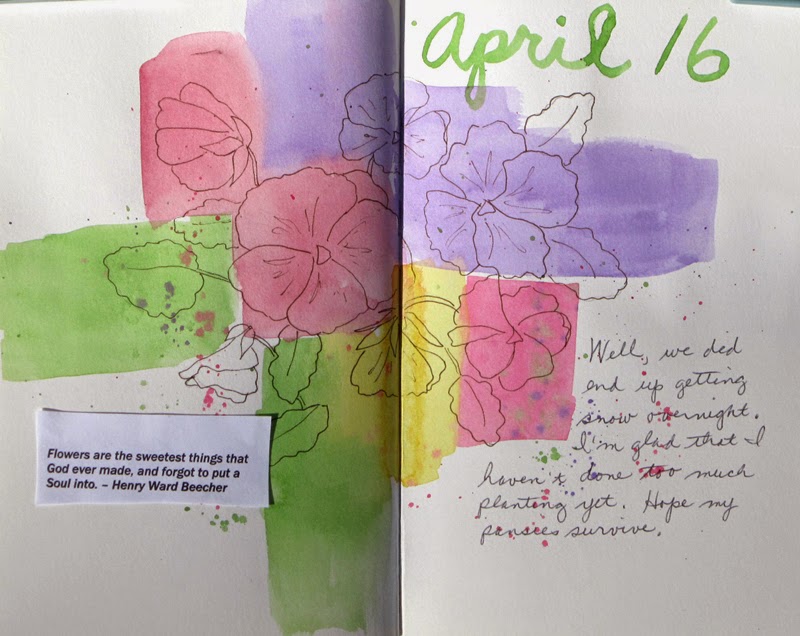 Flowers are the sweetest things that
God ever made, and forgot to put a
Soul into. – Henry Ward Beecher
April 16
Well, we did
end up getting
snow overnight.
I'm glad that I
haven't done too much
planting yet. Hope my
pansies survive.